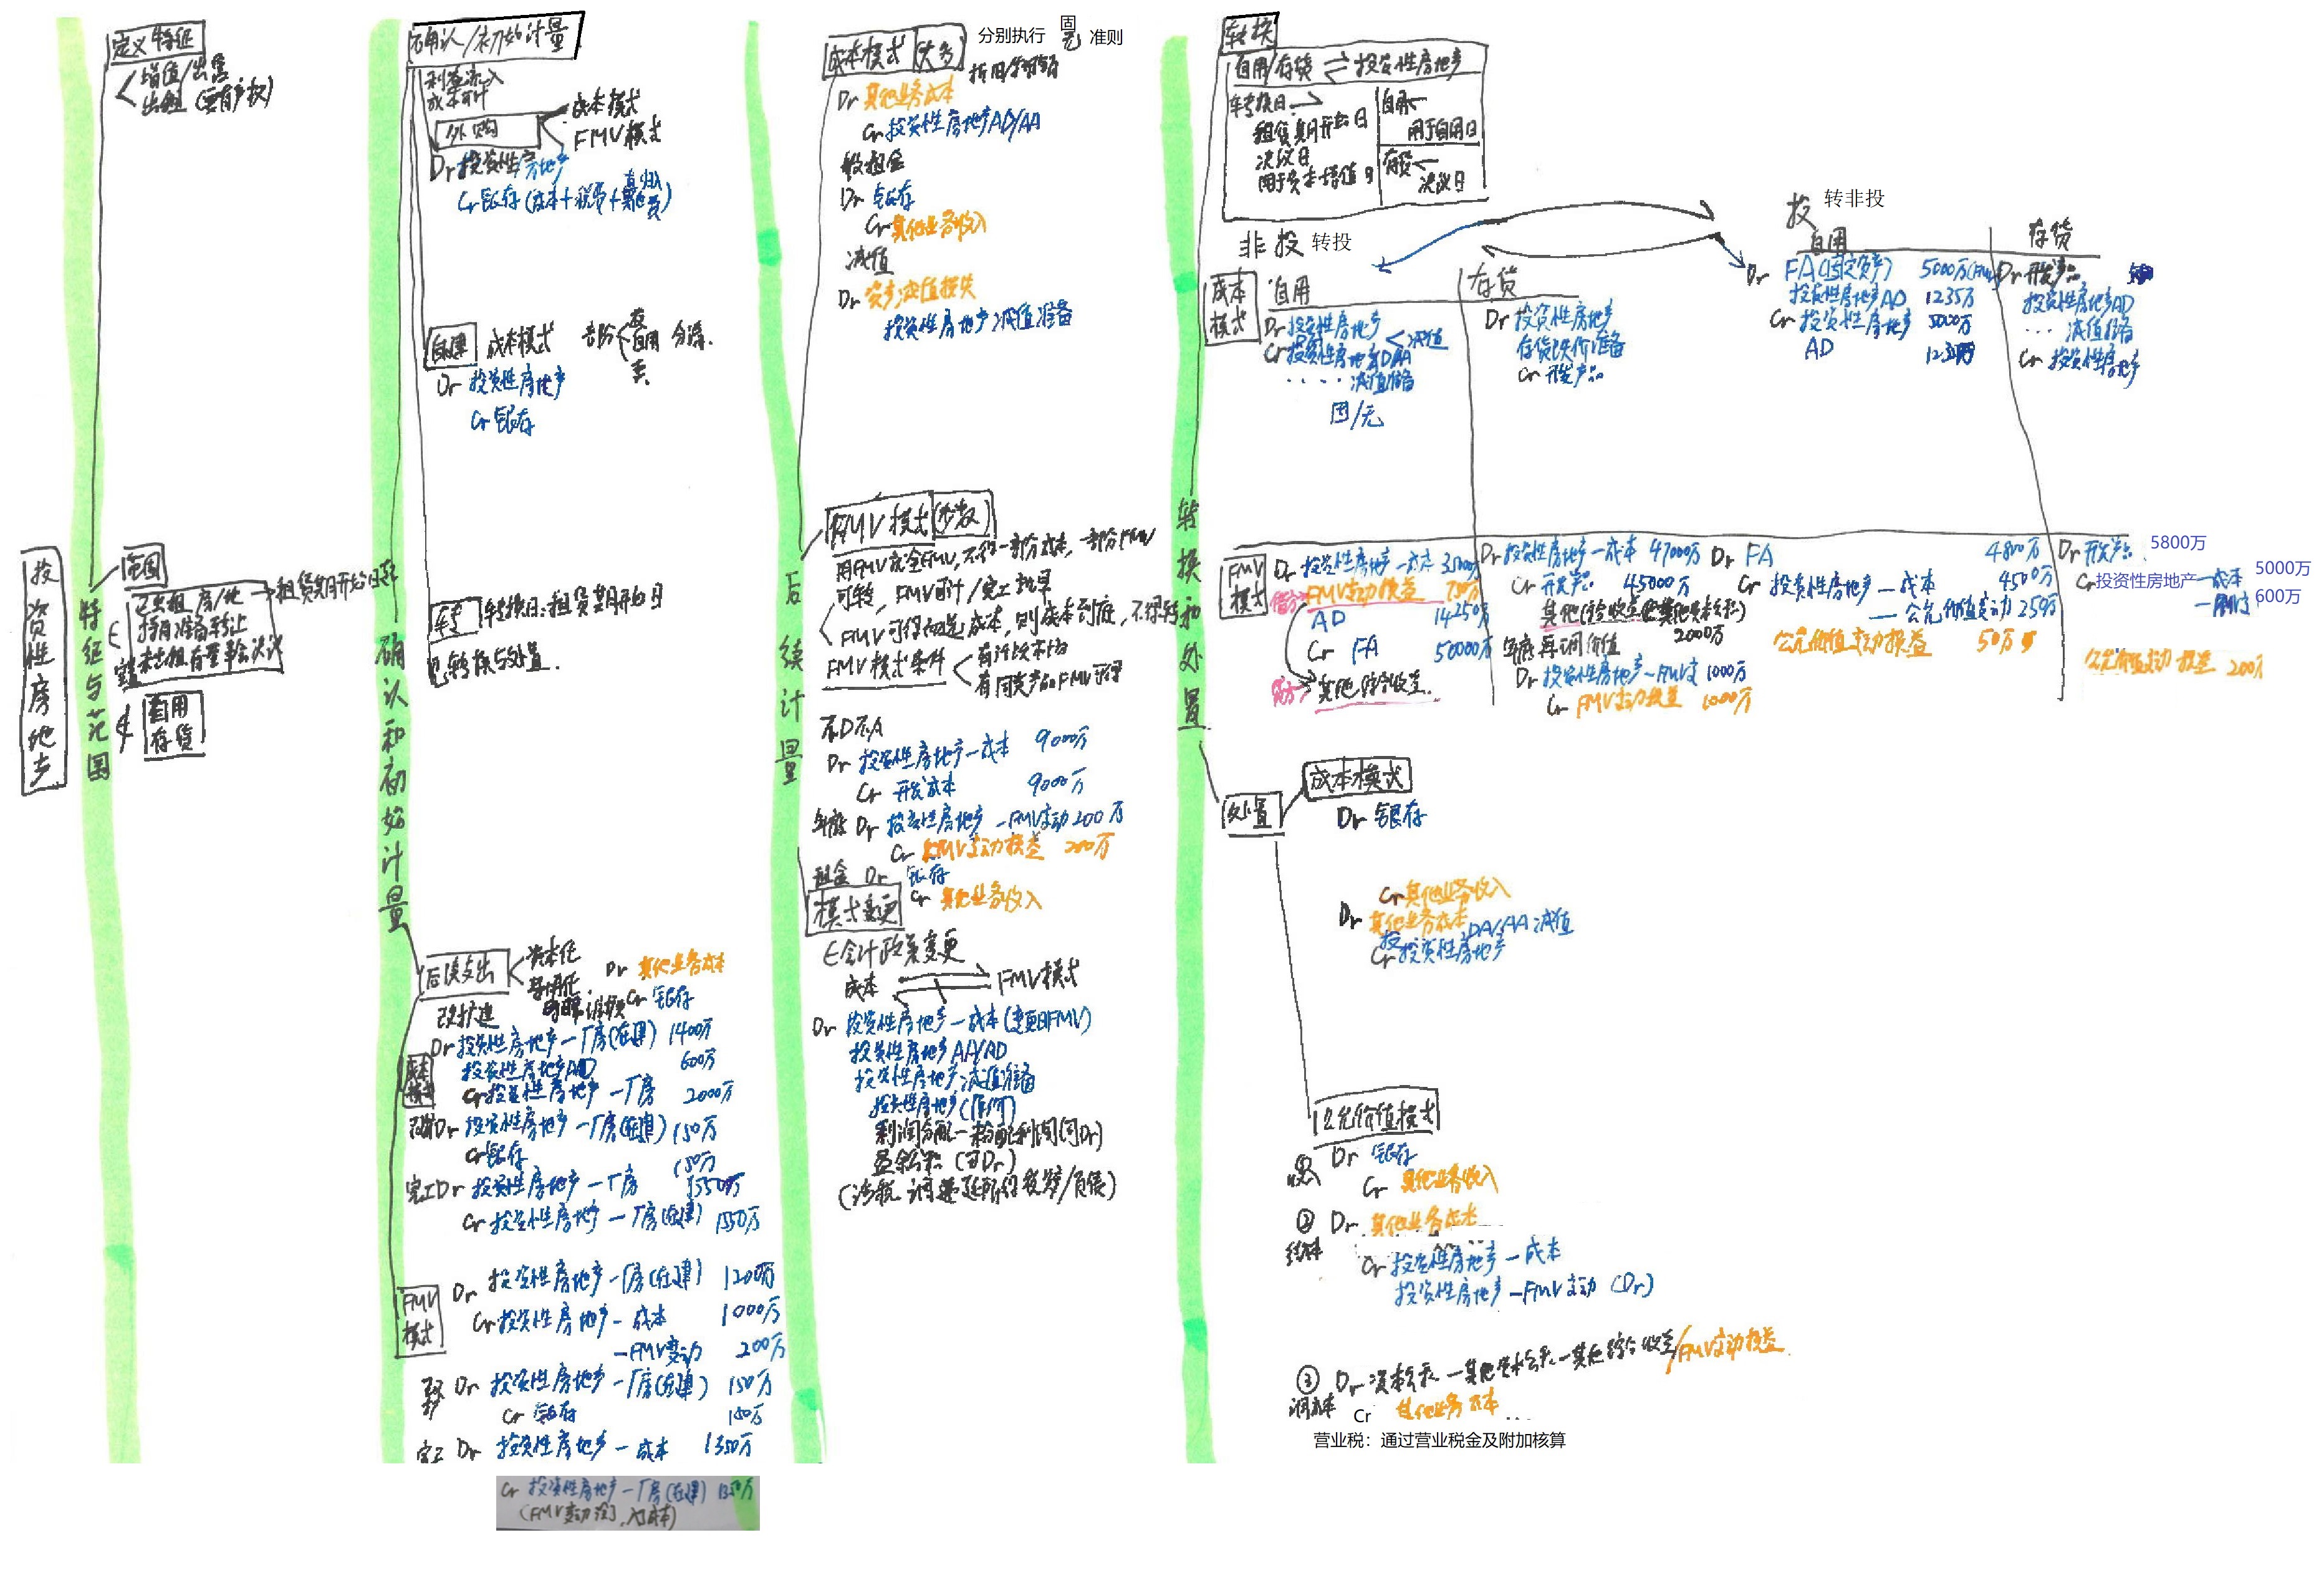 投资性房地产
特征与范围
定义特征
增值/出售
出租(要有产权)
范围
已出租 房/地 → 租赁期开始日起
持有准备转让
自用
存货
确认和初始计量
确认/初始计量
利益流入
成本可计
外购
成本模式
FMV模式
Dr 投资性房地产
Cr 银存(成本+税费+其他费)
自建 成本模式
Dr 投资性房地产
Cr 银存
转换日:租赁期开始日
见转换与处置.
后续支出
资本化
费用化
Dr 其他业务成本
Cr 银存
改扩建
成本模式
Dr 投资性房地产—厂房(在建) 1400万
投资性房地产AD 600万
Cr 投资性房地产—厂房 2000万
Dr 投资性房地产—厂房(在建) 150万
Cr 银存 150万
完工 Dr 投资性房地产—厂房 1550万
Cr 投资性房地产—厂房(在建) 1550万
FMV模式
Dr 投资性房地产—厂房(在建) 1200万
Cr 投资性房地产—成本 1000万
—FMV变动 200万
Dr 投资性房地产—厂房(在建) 150万
Cr 银存 150万
完工 Dr 投资性房地产—成本 1350万
Cr 投资性房地产—厂房(在建) 1350万
后续计量
成本模式 大多
分别执行 固 无 准则
折旧/摊销
Dr 其他业务成本
Cr 投资性房地产AD/AA
收租金
Dr 银存
Cr 其他业务收入
减值
Dr 资产减值损失
投资性房地产减值准备
FMV模式(少数)
用FMV就全FMV,不得一部分成本,一部分FMV
可转, FMV可计/完工孰早
FMV模式条件
有活跃市场
有同类产品FMV可得
不D不A
Dr 投资性房地产—成本 9000万
Cr 开发成本 9000万
年底 Dr 投资性房地产—FMV变动 200万
Cr FMV变动损益 200万
租金 Dr 银存
Cr 其他业务收入
模式变更
∈会计政策变更
成本 FMV模式
Dr 投资性房地产—成本(变更日FMV)
投资性房地产AA/AD
投资性房地产减值准备
投资性房地产(原价)
利润分配—未分配利润(可Dr)
盈余公积(可Dr)
(涉税 调递延所得税资产/负债)
转换和处置
转换
自用/存货 ⇌ 投资性房地产
转换日→
租赁期开始日
决议日
用于资本增值日
自用←
用于自用日
存货←
决议日
非投 转投
投 转非投
成本模式
自用
存货
自用
存货
Dr 投资性房地产
减值准备
固/无
Dr 投资性房地产
存货跌价准备
Cr 开发产品
Dr FA(固定资产) 5000万
投资性房地产AD 1235万
Cr 投资性房地产 5000万
AD 1235万
Dr 开发产品
投资性房地产AD
...减值准备
Cr 投资性房地产
FMV模式
Dr 投资性房地产—成本 35000万
借方 FMV变动损益 750万
AD 14250万
Cr FA 50000万
贷方 其他综合收益.
Dr 投资性房地产—成本 47000万
Cr 开发产品 45000万
2000万
年底再调价值
Dr 投资性房地产—FMV变 1000万
Cr FMV变动损益 1000万
Dr FA 4800万
Cr 投资性房地产—成本 4500万
—公允价值变动 250万
公允价值变动损益 50万
Dr 开发产品 5800万
Cr 投资性房地产—成本 5000万
600万
公允价值变动损益 200万
处置
成本模式
Dr 银存
Cr 其他业务收入
Dr 其他业务成本
DA/AA减值
Cr 投资性房地产
公允价值模式
Dr 银存
Cr 其他业务收入
② Dr 其他业务成本
Cr 投资性房地产—成本
投资性房地产—FMV变动(Dr)
③ Dr 资本公积—其他资本公积—其他综合收益/FMV变动损益
Cr 其他业务成本...
营业税:通过营业税金及附加核算